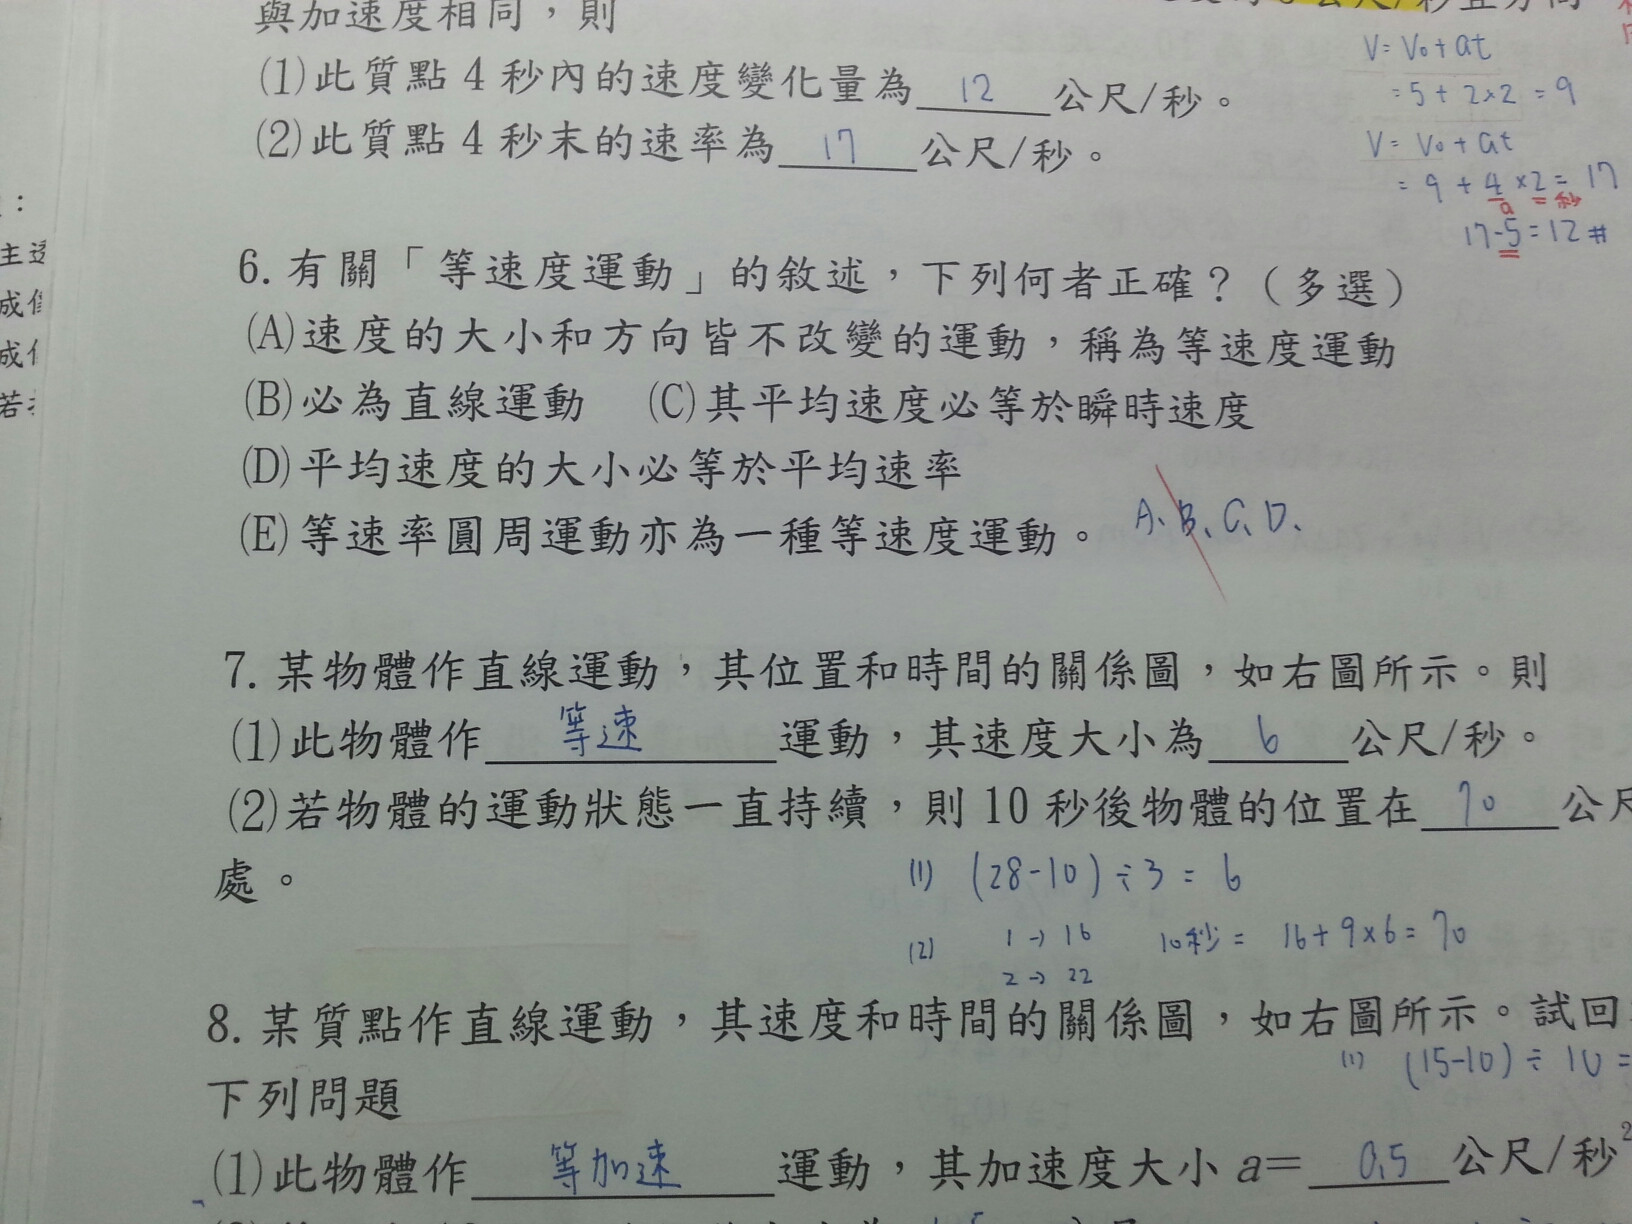 與加速度相同，則
(1)此質點 4 秒內的速度變化量為 12 公尺/秒。
(2)此質點 4 秒末的速率為 17 公尺/秒。
V= V₀+at
=5+2×2=9
V= V₀+at
=9+4×2=17
a =秒
17-5=12#
主
成
成
若
6.有關「等速度運動」的敘述，下列何者正確？（多選）
(A)速度的大小和方向皆不改變的運動，稱為等速度運動
(B)必為直線運動 (C)其平均速度必等於瞬時速度
(D)平均速度的大小必等於平均速率
(E)等速率圓周運動亦為一種等速度運動。 A、B、C、D、
7.某物體作直線運動，其位置和時間的關係圖，如右圖所示。則
(1)此物體作 等速 運動，其速度大小為 6 公尺/秒。
(2)若物體的運動狀態一直持續，則 10 秒後物體的位置在 70 公尺
處。
(1) (28-10)÷3=6
(2) 1→16 10秒= 16+9×6=70
2→22
8.某質點作直線運動，其速度和時間的關係圖，如右圖所示。試回
(1) (15-10)÷10=
下列問題
(1)此物體作 等加速 運動，其加速度大小 a= 0.5 公尺/秒²